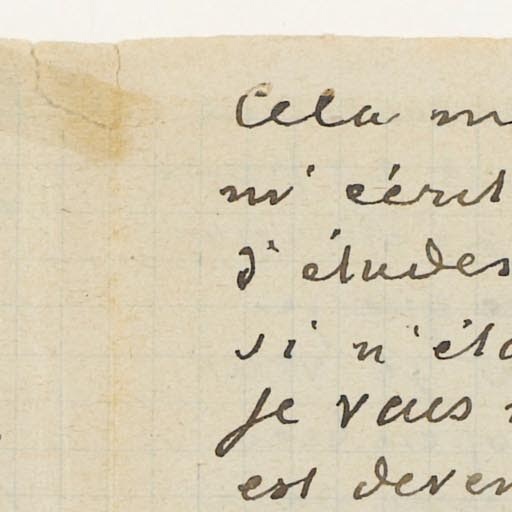 Cela m
m'écrit
d'études
si n'éta
je vais
est deven